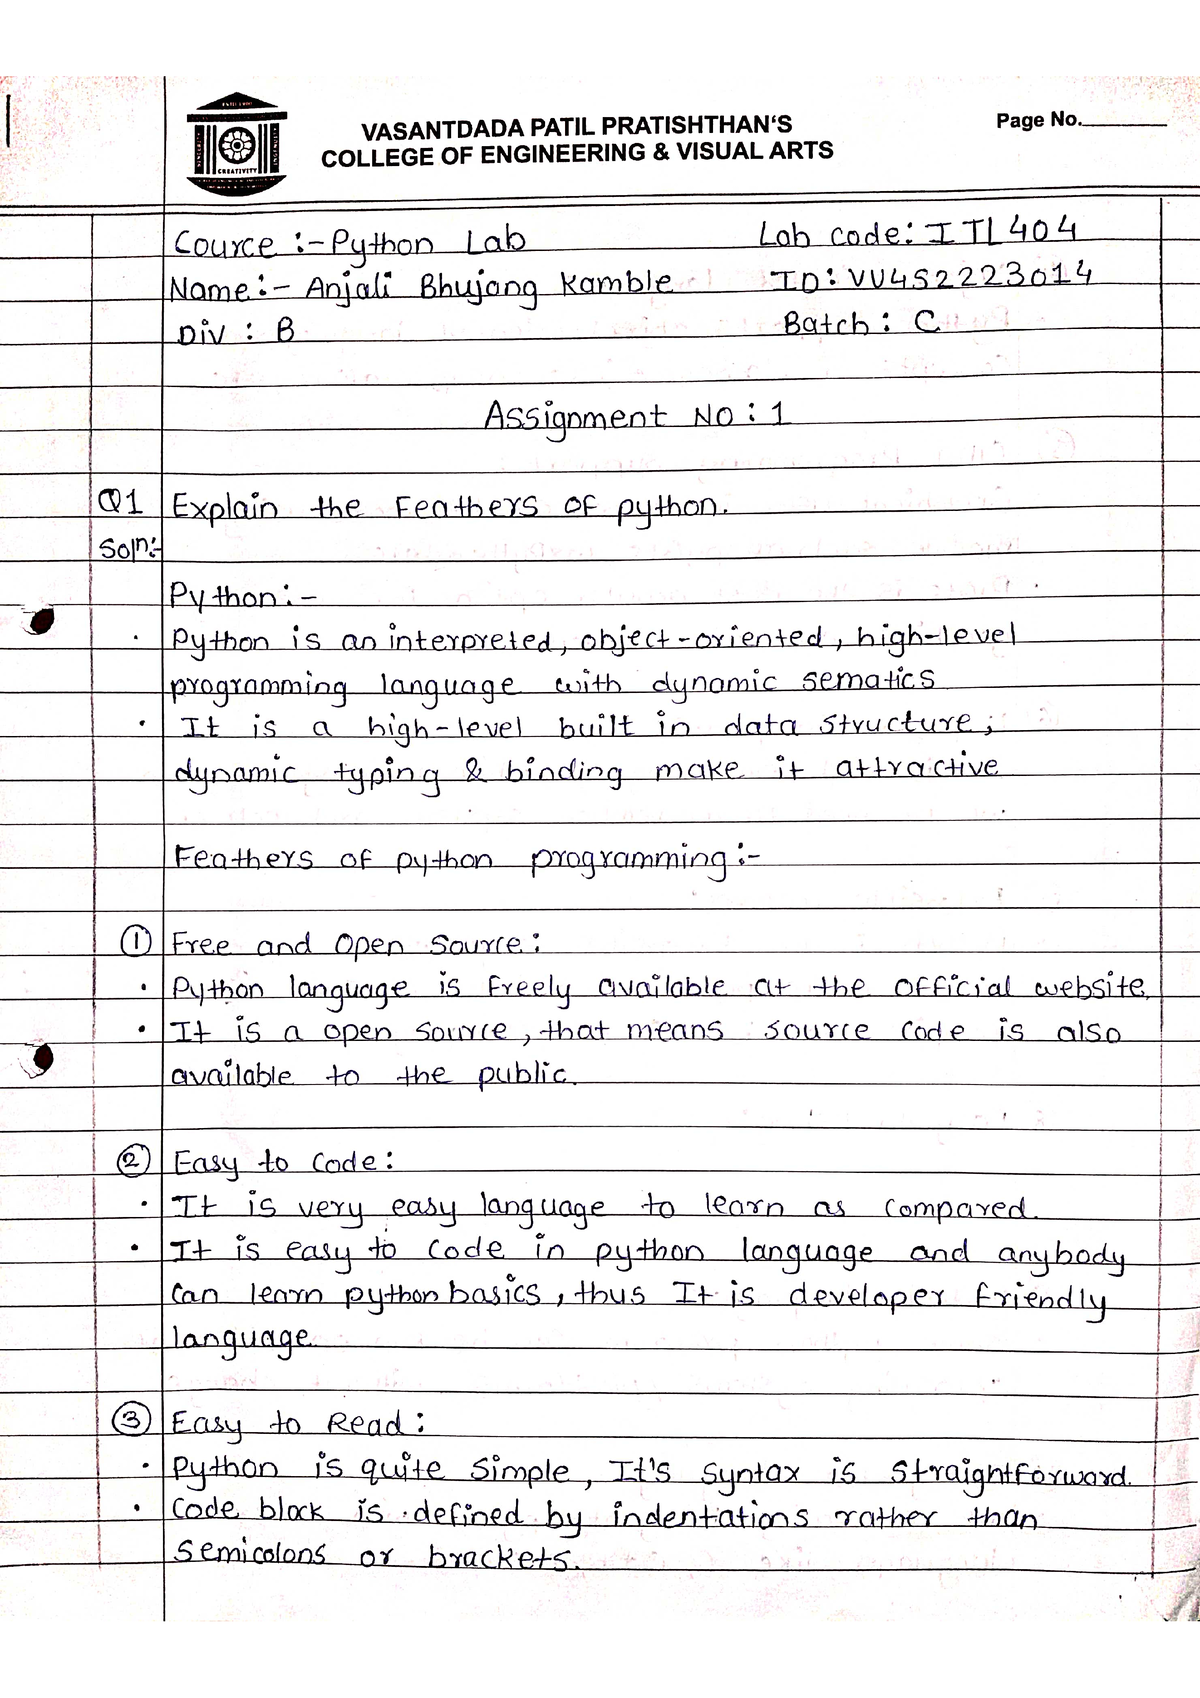 VASANTDADA PATIL PRATISHTHAN'S
COLLEGE OF ENGINEERING & VISUAL ARTS
Page No.
CREATIVITY
Cource :- Python Lab Lab code: ITL404
Name:- Anjali Bhujang Kamble ID: VU4S2223014
Div : B Batch : C
Assignment No : 1
Q1 Explain the Feathers of python.
Soln:-
Python:-
· Python is an interpreted, object-oriented, high-level
programming language with dynamic sematics
· It is a high-level built in data structure,
dynamic typing & binding make it attractive
Feathers of python programming:-
① Free and Open Source:
· Python language is freely available at the official website.
· It is a open source, that means source code is also
available to the public.
② Easy to code:
· It is very easy language to learn as compared.
· It is easy to code in python language and anybody
can learn python basics, thus It is developer friendly
language.
③ Easy to Read:
· Python is quite simple, It's syntax is straightforward.
· Code block is defined by indentations rather than
semicolons or brackets.